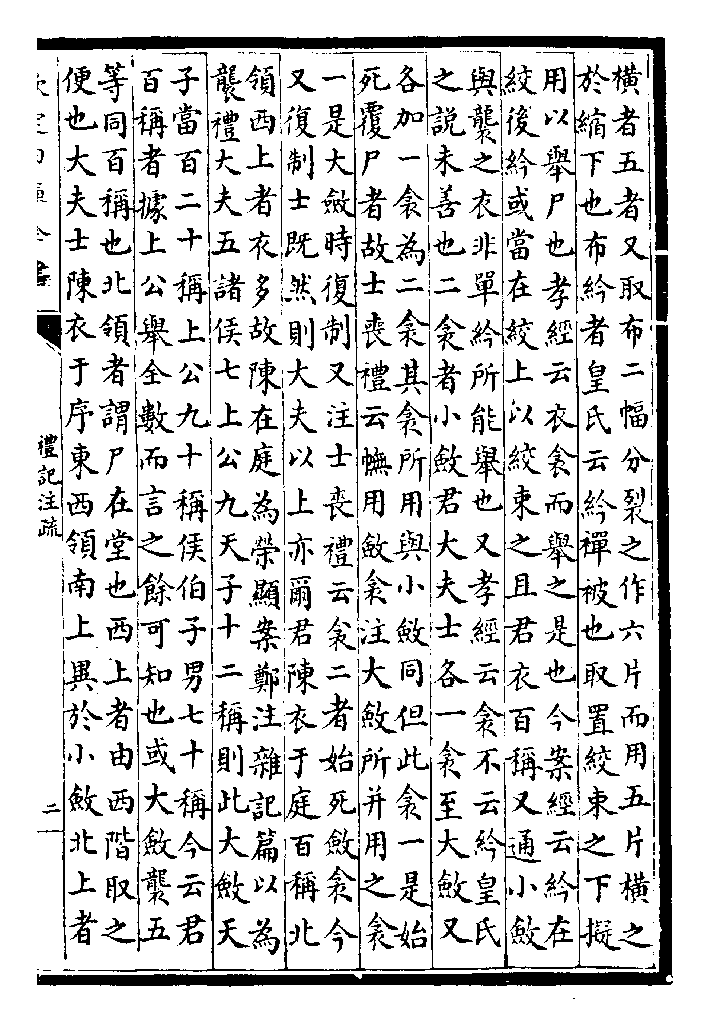 橫者五者又取布二幅分裂之作六片而用五片橫之
於縮下也布紟者皇氏云紟襌被也取置絞束之下擬
用以舉尸也孝經云衣衾而舉之是也今案經云紟在
絞後紟或當在絞上以絞束之且君衣百稱又通小斂
與襲之衣非單紟所能舉也又孝經云衾不云紟皇氏
之說未善也二衾者小斂君大夫士各一衾至大斂又
各加一衾為二衾其衾所用與小斂同但此衾一是始
死覆尸者故士喪禮云幠用斂衾注大斂所并用之衾
一是大斂時復制又注士喪禮云衾二者始死斂衾今
又復制士既然則大夫以上亦爾君陳衣于庭百稱北
領西上者衣多故陳在庭為榮顯案鄭注雜記篇以為
襲禮大夫五諸侯七上公九天子十二稱則此大斂天
子當百二十稱上公九十稱侯伯子男七十稱今云君
百稱者據上公舉全數而言之餘可知也或大斂襲五
等同百稱也北領者謂尸在堂也西上者由西階取之
便也大夫士陳衣于序東西領南上異於小斂北上者
禮記注疏
二